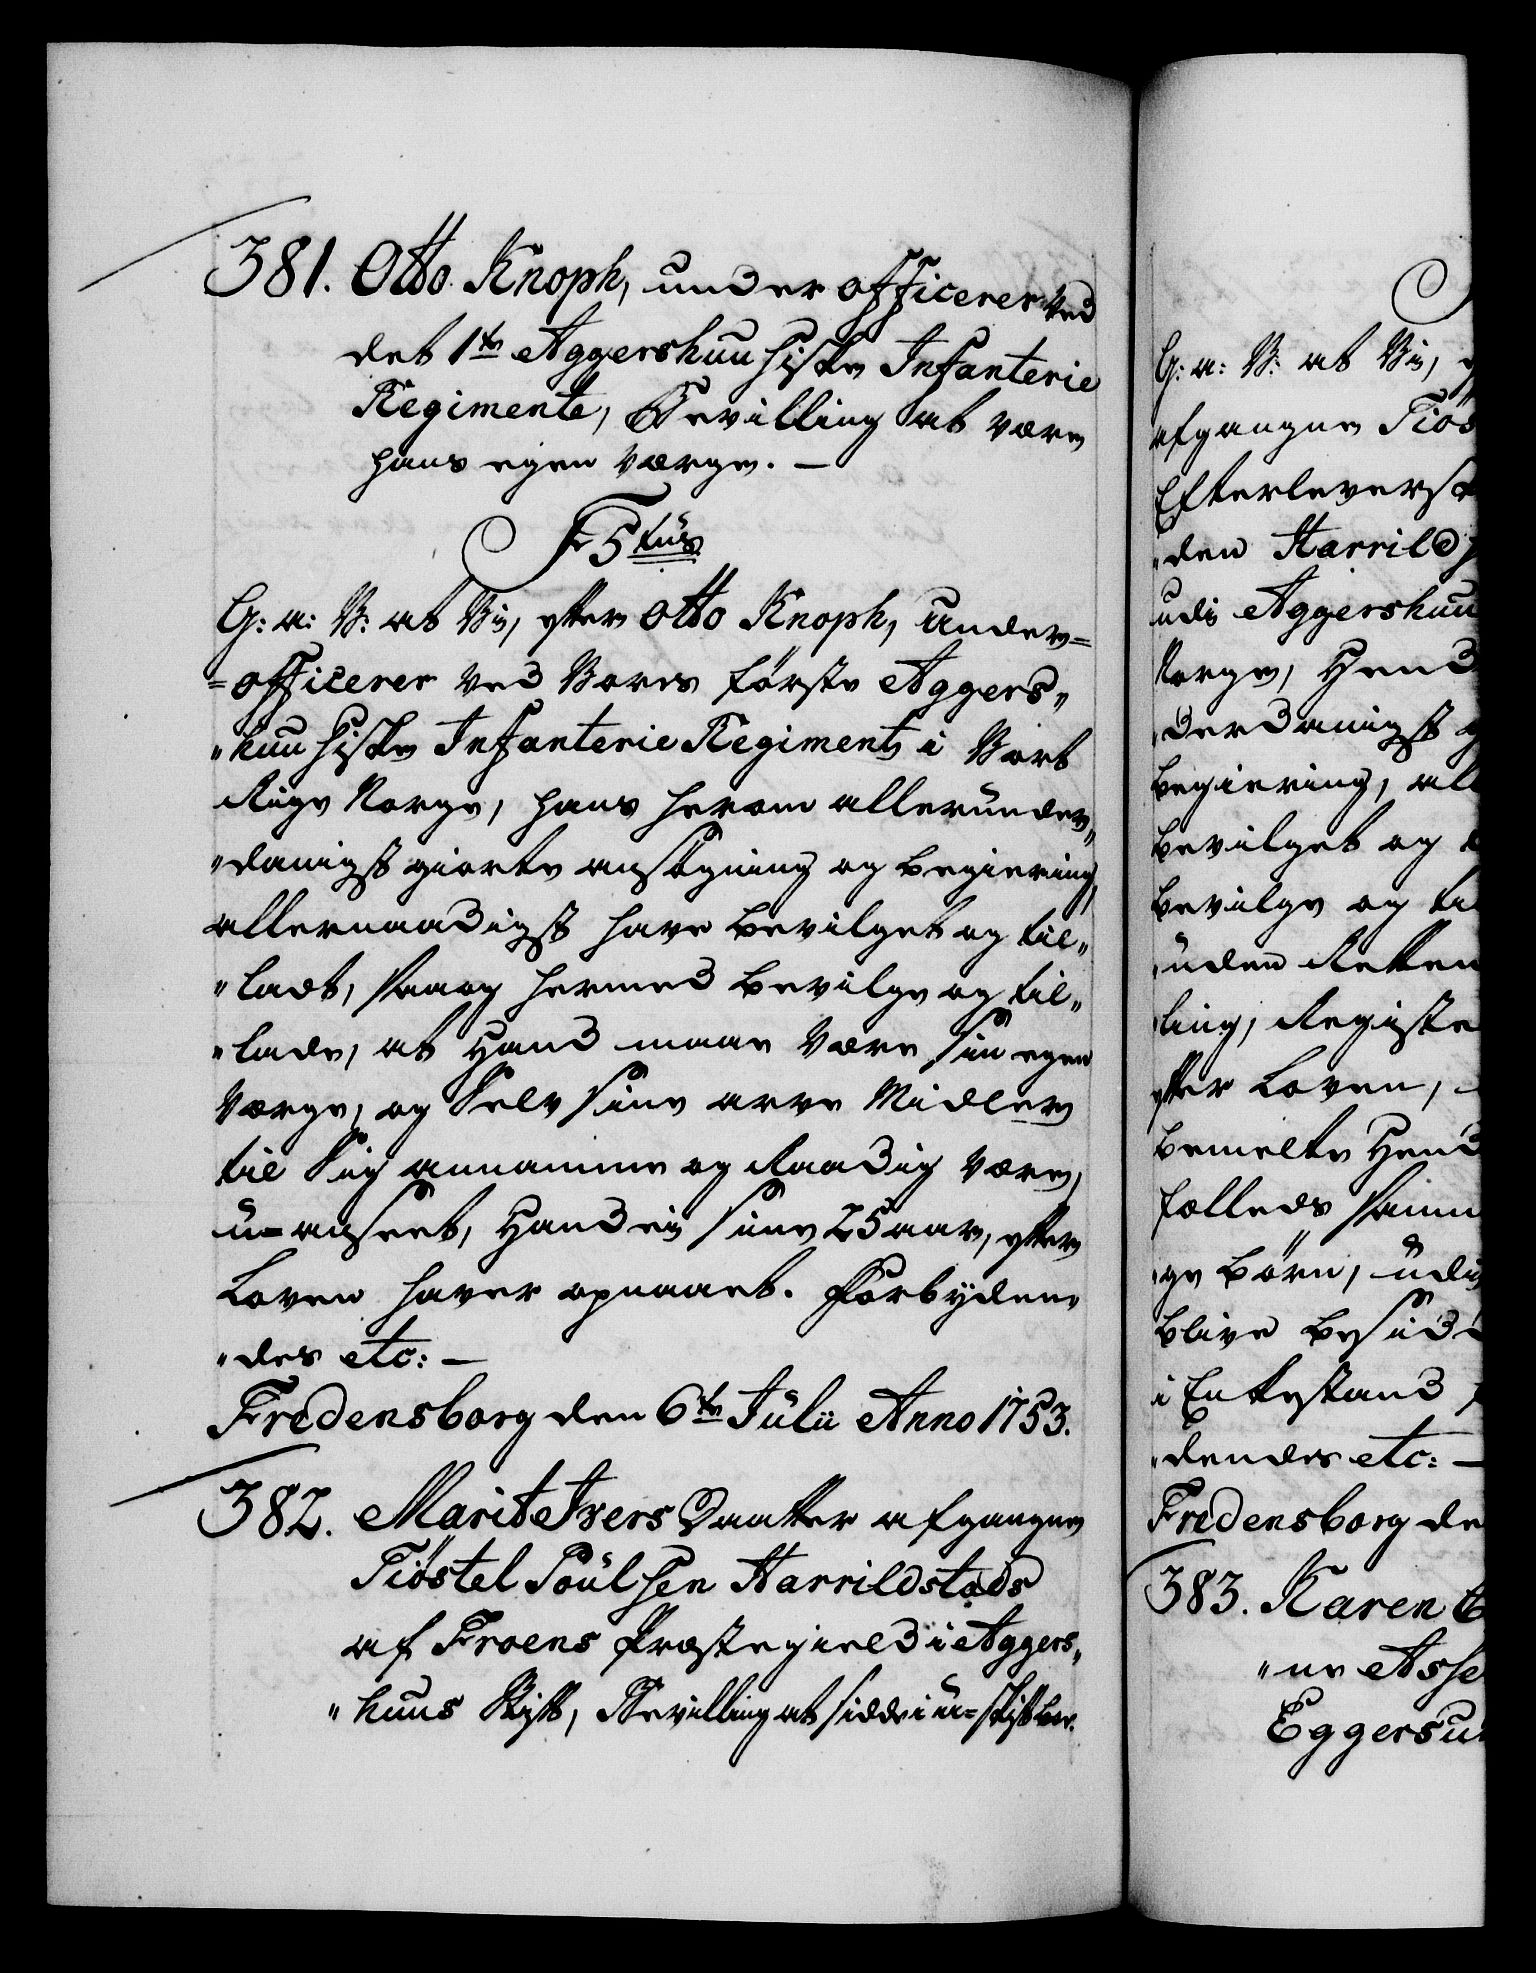 381. Otto Knoph, under officerer ved
det 1te Aggershuusiske Infanterie
Regimente, Bevilling at være
hans egen Værge. —
F 5tus
G: a: V: at Vi, efter Otto Knoph, under=
=officerer ved Vores første Aggers„
„huusiske Infanterie Regiment i Vort
Rige Norge, hans herom allerunder„
„danigst giorte ansøgning og begiering,
allernaadigst have bevilget og til„
„ladt, saa og hermed bevilge og til„
„lade, at Hand maae være sin egen
Værge, og Selv sine arve Midler
til Sig annamme og Raadig være,
u=anseet, Hand ey sine 25 aar, efter
Loven haver opnaaet. Forbyden„
„des etc: —
Fredensborg den 6te Julii Anno 1753.
382. Marit Ivers Daatter afgangne
Tiøstel Poulsen Harrildstads
af Froens Præstegield i Aggers„
„huus Stift, Bevilling at sidde i u=skiftet boe.
G: a: V: at Vi,
afgangne Tiøs
Efterleversk
„den Harrild
udi Aggershuu
Norge, Hend
„derdanigst
begiering, all
bevilget og
bevilge og til
„uden Retten
„ling, Registe
efter Loven,
bemelte Hend
fælleds
„ge børn, udi
blive besid
i Enkestand
„dendes etc: —
Fredensborg de
383. Karen
„ne Asse
Eggersu